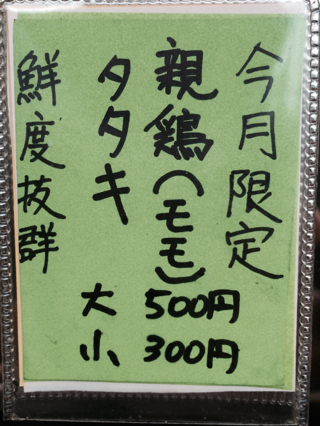 今月限定
親鶏(モモ)
タタキ
鮮度抜群
大 500円
小 300円